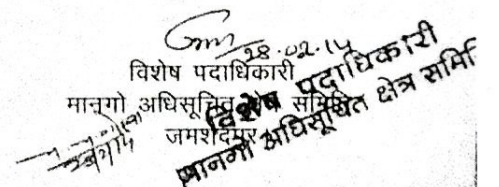 28.02.14
विशेष पदाधिकारी
मानगो अधिसूचित क्षेत्र समिति
जमशेदपुर
विशेष पदाधिकारी
मानगो अधिसूचित क्षेत्र समिति